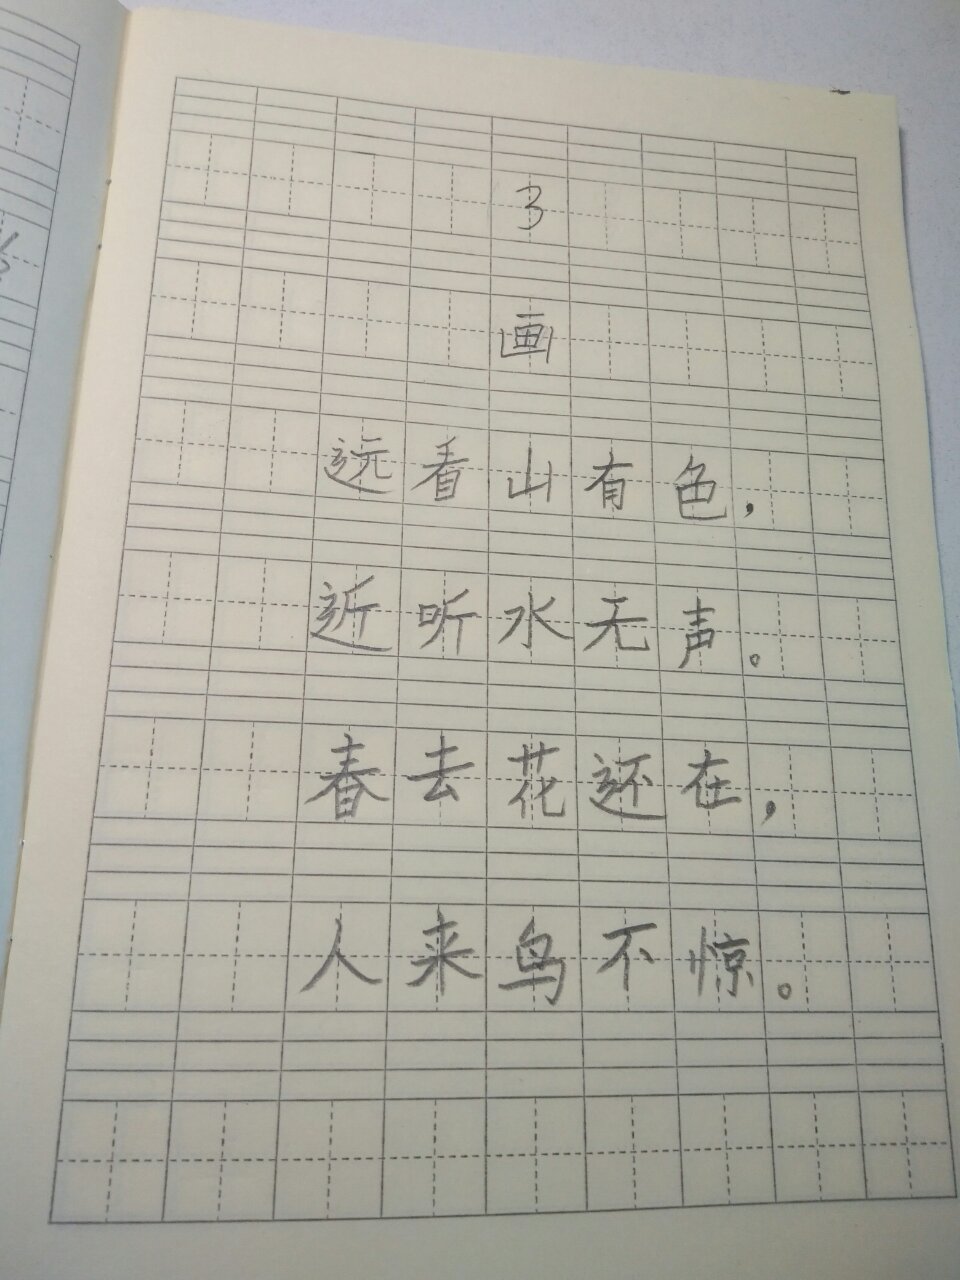 3
画
远看山有色，
近听水无声。
春去花还在，
人来鸟不惊。